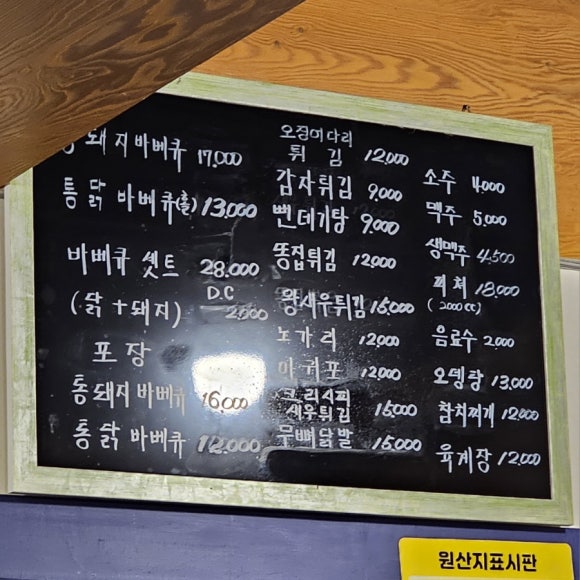 통돼지바베큐 17,000
통닭 바베큐(홀) 13,000
바베큐 셋트 28,000
(닭+돼지) DC 2,000
포장
통돼지바베큐 16,000
통닭 바베큐 12,000
오징어다리
튀김 12,000
감자튀김 9,000
뻔데기탕 9,000
똥집튀김 12,000
왕새우튀김 15,000
노가리 12,000
아귀포 12,000
크리스피
새우튀김 15,000
무뼈닭발 15,000
소주 4,000
맥주 5,000
생맥주 4,500
피쳐 18,000
(2000cc)
음료수 2,000
오뎅탕 13,000
참치찌개 12,000
육계장 12,000
원산지표시판